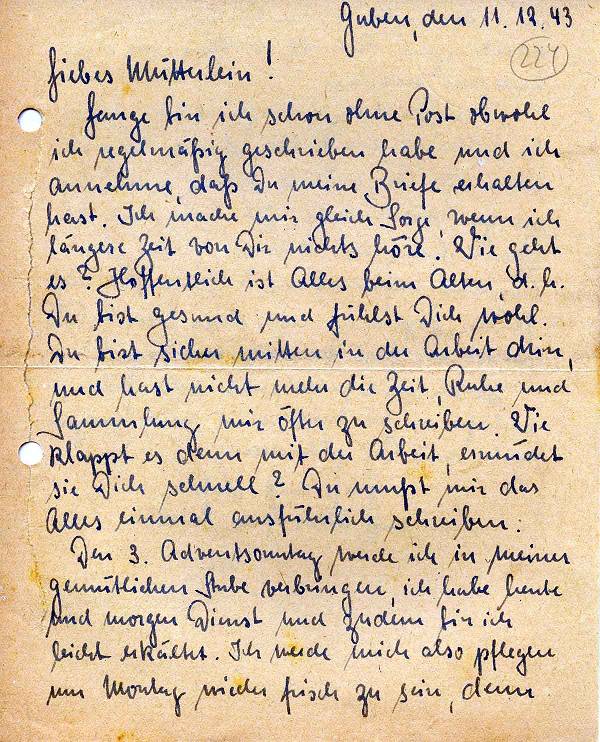 Guben, den 11.12.43
224
Liebes Mütterlein!
Lange bin ich schon ohne Post obwohl
ich regelmäßig geschrieben habe und ich
annehme, daß Du meine Briefe erhalten
hast. Ich mache mir gleich Sorge, wenn ich
längere Zeit von Dir nichts höre. Wie geht
es? Hoffentlich ist Alles beim Alten, d.h.
Du bist gesund und fühlst Dich wohl.
Du bist sicher mitten in der Arbeit drin,
und hast nicht mehr die Zeit, Ruhe und
Sammlung mir öfter zu schreiben. Wie
klappt es denn mit der Arbeit, ermüdet
sie Dich schnell? Du mußt mir das
Alles einmal ausführlich schreiben.
Den 3. Adventsonntag werde ich in meiner
gemütlichen Stube verbringen, ich habe heute
und morgen Dienst und zudem bin ich
leicht erkältet. Ich werde mich also pflegen
um Montag wieder frisch zu sein, denn